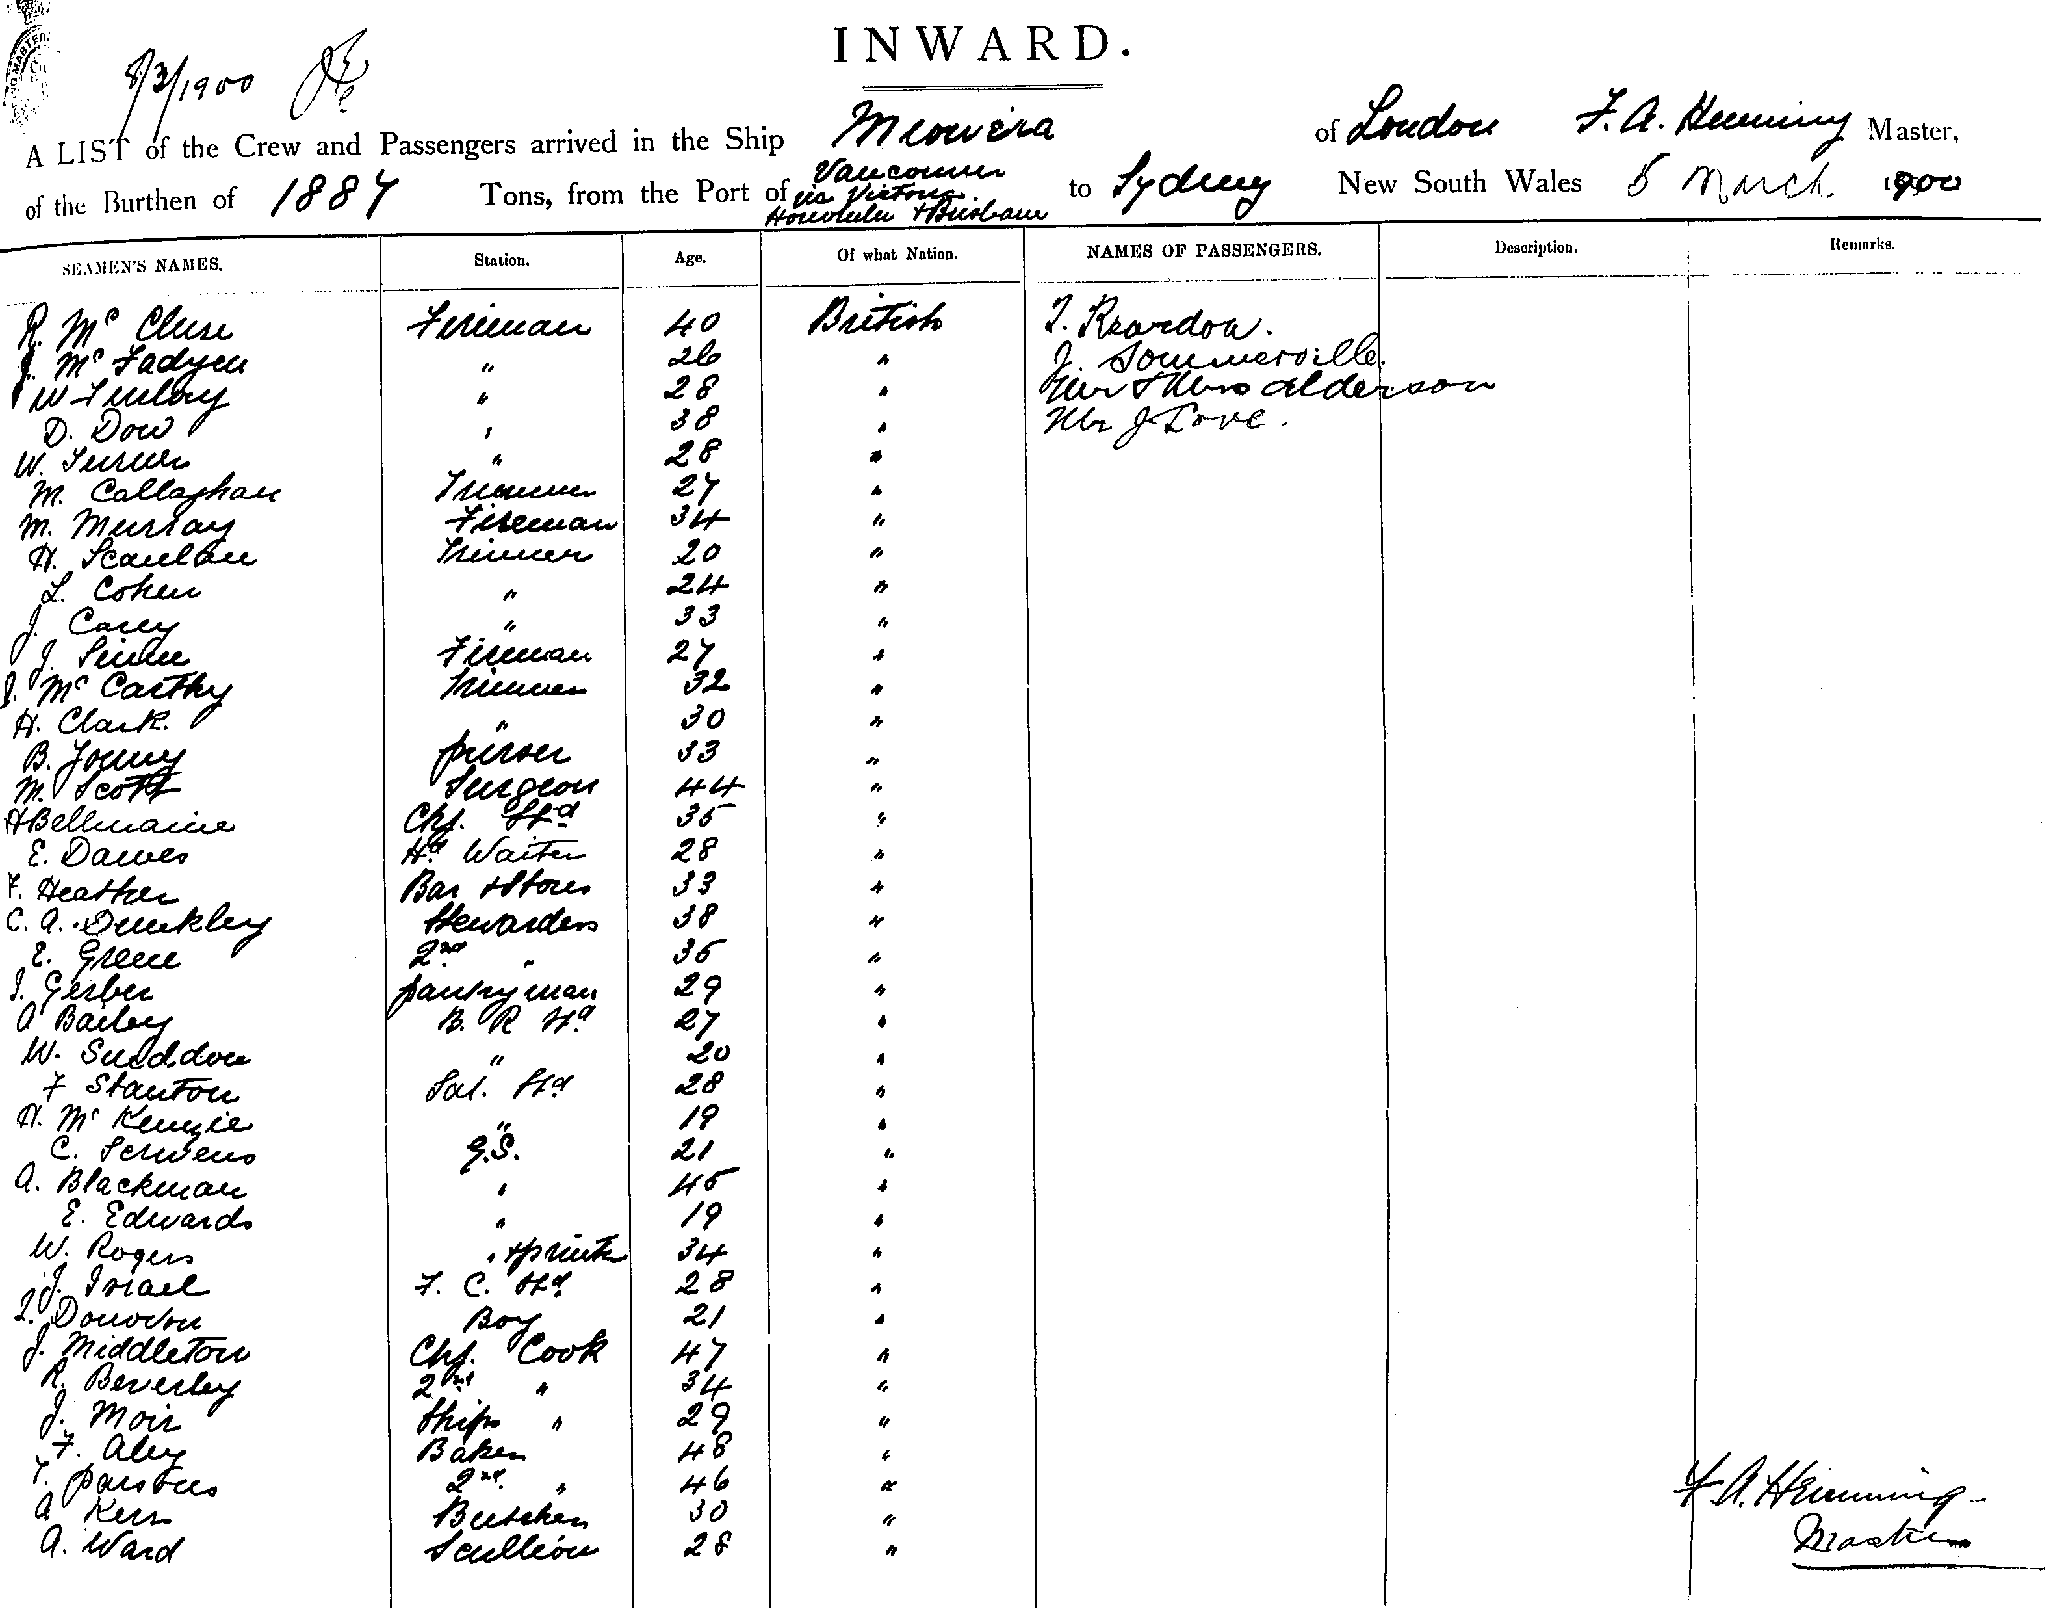 INWARD.
8/3/1900
A LIST of the Crew and Passengers arrived in the Ship Miowera of London F. A. Hemming Master,
of the Burthen of 1887 Tons, from the Port of Vancouver via Victoria Honolulu & Brisbane to Sydney New South Wales 5 March 1900
SEAMEN'S NAMES. Station. Age. Of what Nation. NAMES OF PASSENGERS. Description. Remarks.
R. Mc Clure Fireman 40 British T. Reardon.
J. Mc Fadyen " 26 " J. Sommerville.
W Finlay " 28 " Mr & Mrs Alderson
D. Dow " 38 " Mr J Love.
W. Turner " 28 "
M. Callaghan Trimmer 27 "
M. Murray Fireman 34 "
H. Scanlan Trimmer 20 "
L. Cohen " 24 "
J. Carey " 33 "
J. Fireman 27 "
J. Mc Carthy Trimmer 32 "
H. Clark. " 30 "
B. Young purser 33 "
M. Scott Surgeon 44 "
H Bellmaine Chf. Std 35 "
E. Dawes Hd Waiter 28 "
F. Heather Bar & Stores 33 "
C. A. Dunkley Stewardess 38 "
E. Greene 2nd " 35 "
J. Gerber pantryman 29 "
A Bailey B. R Std 27 "
W. Sneddon " 20 "
F Stanton Sal. Std 28 "
H. Mc Kenzie " 19 "
C. Scrivens G.S. 21 "
A. Blackman " 45 "
E. Edwards " 19 "
W. Rogers " & printer 34 "
J. Israel F. C. Std 28 "
J. Donovan Boy 21 "
J. Middleton Chf. Cook 47 "
R. Beverley 2nd " 34 "
J. Moir Ships " 29 "
F. Aley Baker 48 "
T. parsons 2nd " 46 "
A Kerr Butcher 30 "
A. Ward Scullion 28 "
F. A. Hemming
Master